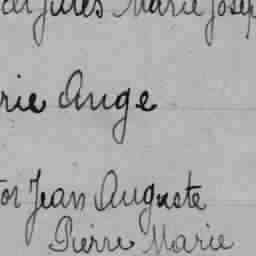 Jules Marie Josep
rie Ange
tor Jean Auguste
Pierre Marie